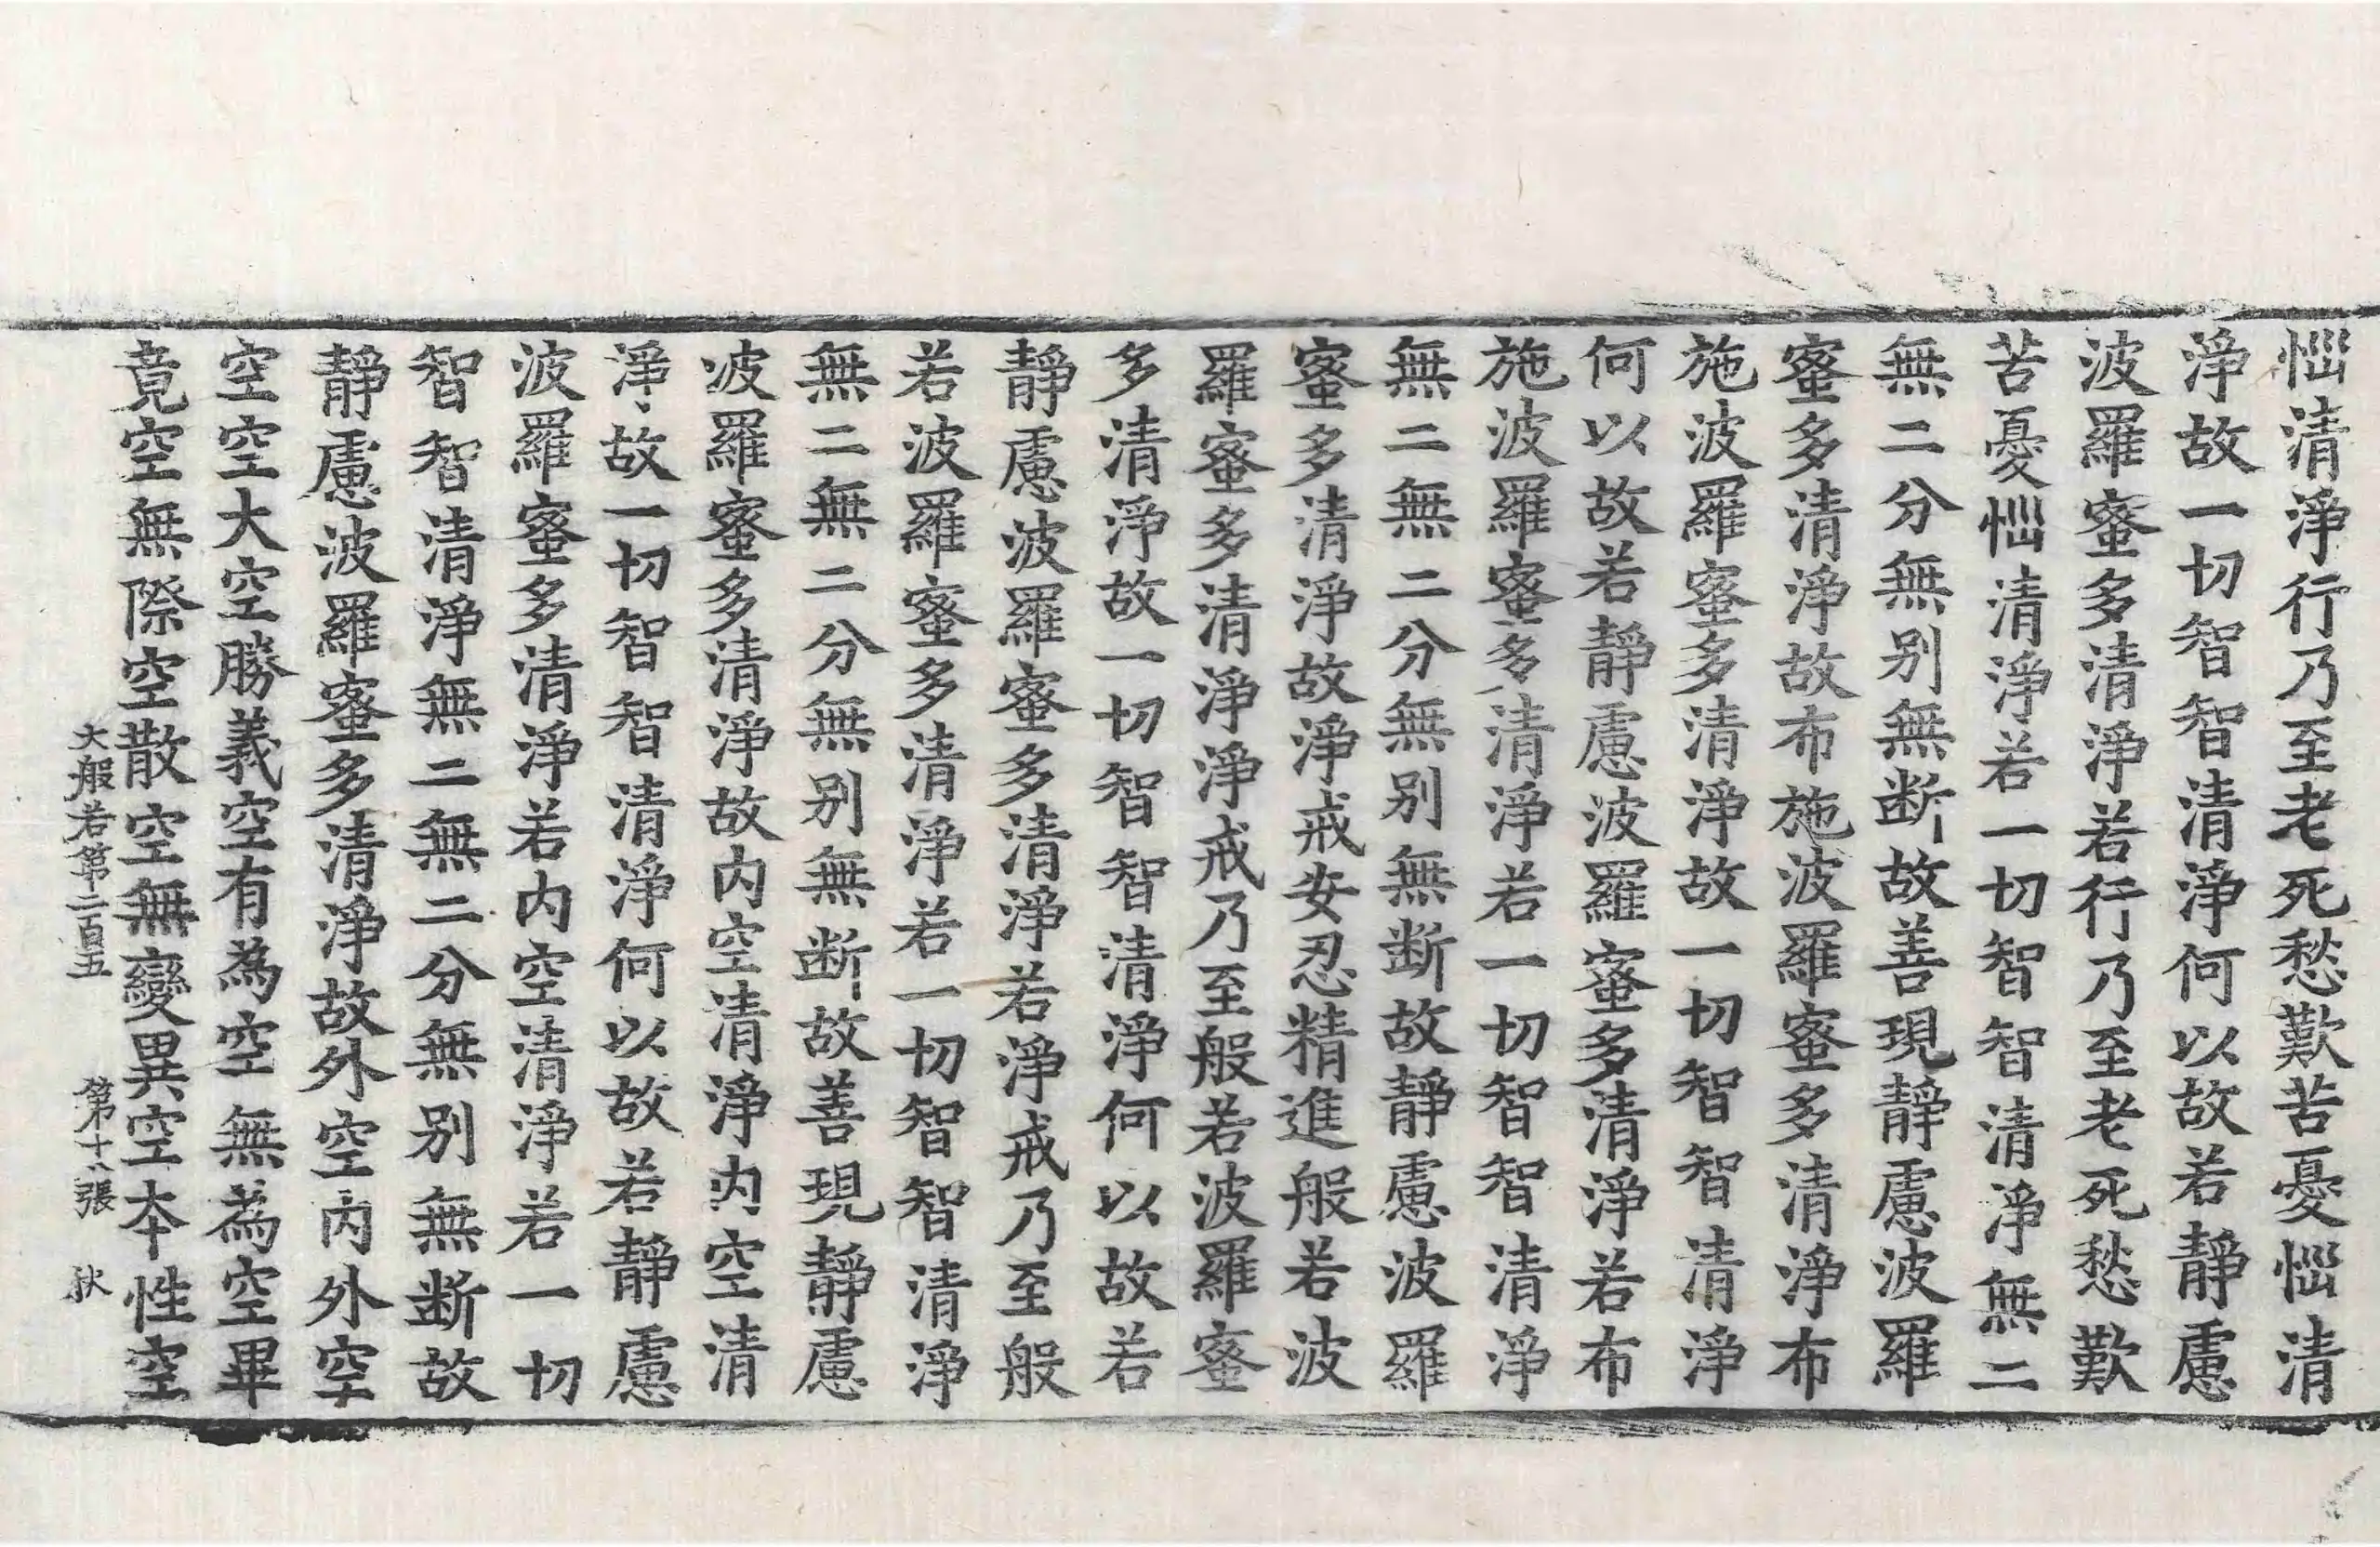 惱清淨行乃至老死愁歎苦憂惱清
淨故一切智智清淨何以故若靜慮
波羅蜜多清淨若行乃至老死愁歎
苦憂惱清淨若一切智智清淨無二
無二分無別無斷故善現靜慮波羅
蜜多清淨故布施波羅蜜多清淨布
施波羅蜜多清淨故一切智智清淨
何以故若靜慮波羅蜜多清淨若布
施波羅蜜多清淨若一切智智清淨
無二無二分無別無斷故靜慮波羅
蜜多清淨故淨戒安忍精進般若波
羅蜜多清淨淨戒乃至般若波羅蜜
多清淨故一切智智清淨何以故若
靜慮波羅蜜多清淨若淨戒乃至般
若波羅蜜多清淨若一切智智清淨
無二無二分無別無斷故善現靜慮
波羅蜜多清淨故內空清淨內空清
淨故一切智智清淨何以故若靜慮
波羅蜜多清淨若內空清淨若一切
智智清淨無二無二分無別無斷故
靜慮波羅蜜多清淨故外空內外空
空空大空勝義空有為空無為空畢
竟空無際空散空無變異空本性空
大般若第二百五　第十八張　狄